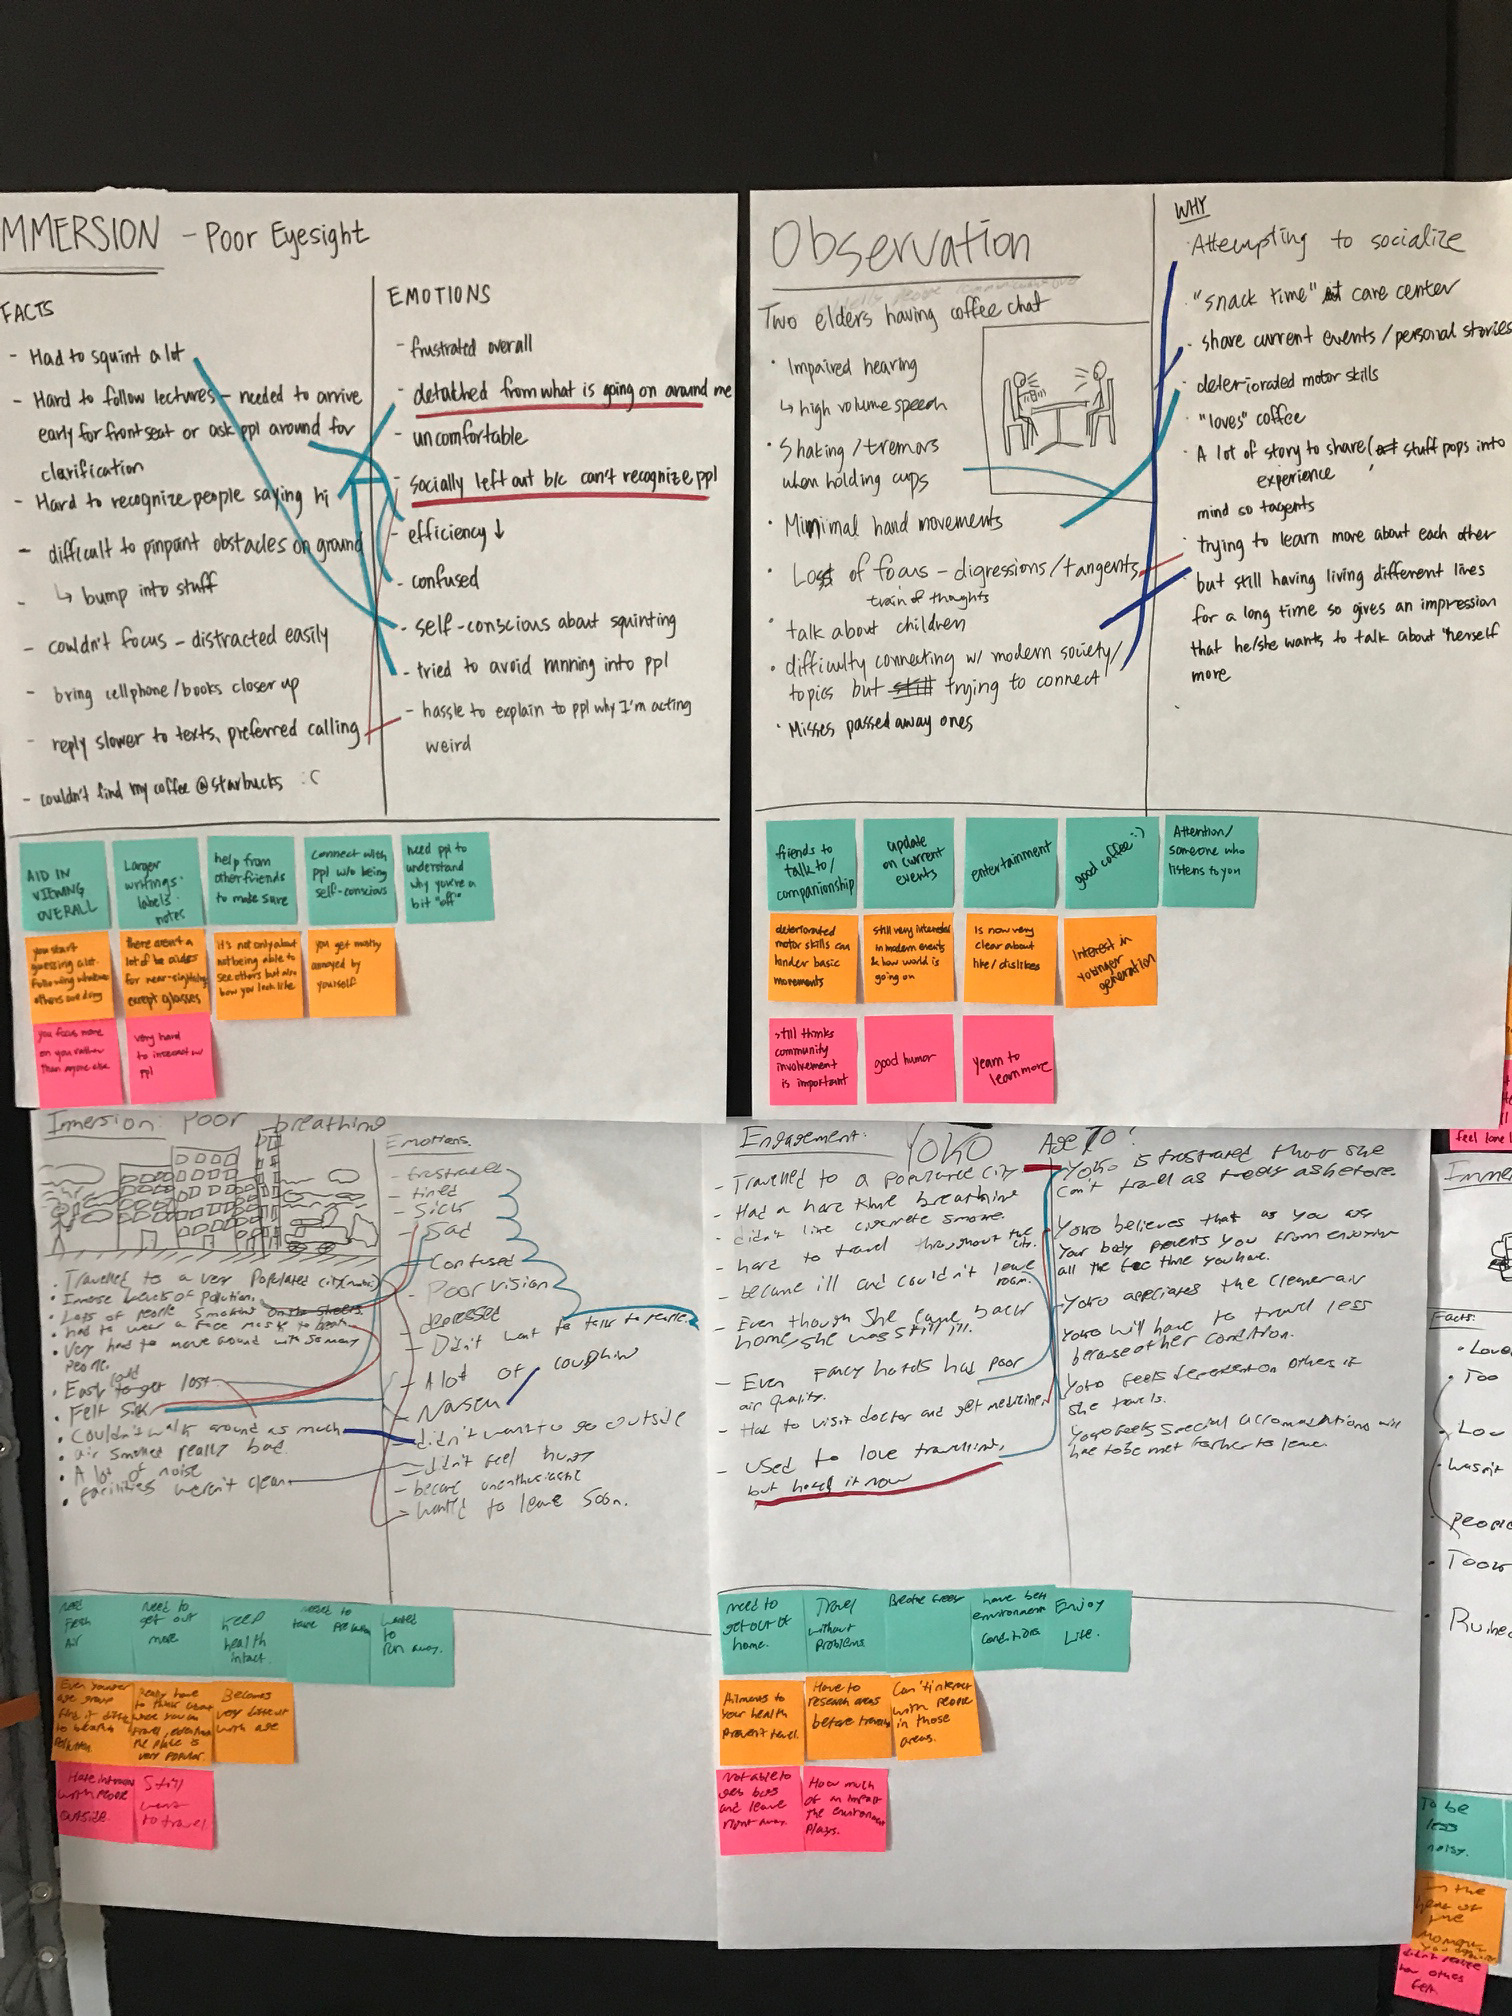 MMERSION - Poor Eyesight
FACTS
- Had to squint a lot
- Hard to follow lectures - needed to arrive
early for front seat or ask ppl around for
clarification
- Hard to recognize people saying hi
- difficult to pinpoint obstacles on ground
↳ bump into stuff
- couldn't focus - distracted easily
- bring cellphone/books closer up
- reply slower to texts, preferred calling
- couldn't find my coffee @ starbucks :(
EMOTIONS
- frustrated overall
- detached from what is going on around me
- uncomfortable
- socially left out b/c can't recognize ppl
- efficiency ↓
- confused
- self-conscious about squinting
- tried to avoid running into ppl
- hassle to explain to ppl why I'm acting
weird
AID IN
VIEWING
OVERALL
Larger
writings
labels
notes
help from
other friends
to make sure
connect with
ppl w/o being
self-conscious
need ppl to
understand
why you're a
bit "off"
you start
guessing a lot.
Following whatever
others are doing
there aren't a
lot of
for near-sighted
except glasses
it's not only about
not being able to
see others but also
how you look like
you get mostly
annoyed by
yourself
you focus more
on you rather
than anyone else
very hard
to interact w/
ppl
Observation
Two elders having coffee chat
• Impaired hearing
↳ high volume speech
• Shaking/tremors
when holding cups
• Minimal hand movements
• Loss of focus - digressions/tangents
train of thoughts
• talk about children
• difficulty connecting w/ modern society/
topics but still trying to connect
• Misses passed away ones
WHY
• Attempting to socialize
• "snack time" at care center
• share current events/personal stories
• deteriorated motor skills
• "loves" coffee
• A lot of story to share ( stuff pops into
experience
mind so tagents
• trying to learn more about each other
• but still having living different lives
for a long time so gives an impression
that he/she wants to talk about herself
more
friends to
talk to/
companionship
update
on current
events
entertainment
good coffee :)
Attention/
someone who
listens to you
deteriorated
motor skills can
hinder basic
movements
still very interested
in modern events
& how world is
going on
Is now very
clear about
like/dislikes
Interest in
younger
generation
still thinks
community
involvement
is important
good humor
Yearn to
learn more
Immersion: Poor breathing
• Travelled to a very Populated city
• Lots of People smoking on the streets.
• had to wear a face mask to
• Very hard to move around with so many
People.
• Easy to get lost
could
• Felt Sick
• Couldn't walk around as much
• air smelled really bad.
• A lot of noise
• Facilities weren't clean
Emotions:
- frustrated
- tired
- Sick
- Sad
- Confused
- Poor vision
- depressed
- Didn't want to talk to people.
- A lot of coughin
- Nasea
- didn't want to go outside
- didn't feel hungry
- became unenthusiastic
- wanted to leave soon.
NEED
Fresh
Air
Need to
get out
more
KEEP
health
intact
need to
wanted
to
run away.
Becomes
very difficult
with age
with people
outside.
Still
want
to travel
Engagement: YOKO Age 70!
- Travelled to a populated city
- Had a hard time breathing
- didn't like cigarette smoke.
- hard to travel throughout the
city.
- became ill and couldn't leave
room.
- Even though she came back
home, she was still ill.
- Even Fancy hotels had poor
air quality.
- Had to visit doctor and get medicine.
- used to love travelling,
but hates it now
- Yoko is frustrated that she
can't travel as freely as before.
- Yoko believes that as you age
Your body prevents you from enjoying
all the free time you have.
- Yoko appreciates the cleaner air
- Yoko will have to travel less
because of her condition.
- Yoko feels dependent on others if
she travels.
- Yoko feels special accomodations will
have to be met for her to leave.
need to
get out of
home.
Travel
without
Problems
Breathe
have better
environment
conditions
Enjoy
Life.
Ailments to
Your health
Prevent travel.
Have to
research areas
before traveling
Can't interact
with people
in those
areas.
Not able to
and leave
right away.
How much
of an impact
the environment
Plays.
feel
Imme
Facts:
• Too
• Wasn't
• People
• Took
• Ruined
To be
less
noisy.
In the
heat of
the
moment
didn't realize
how others
felt